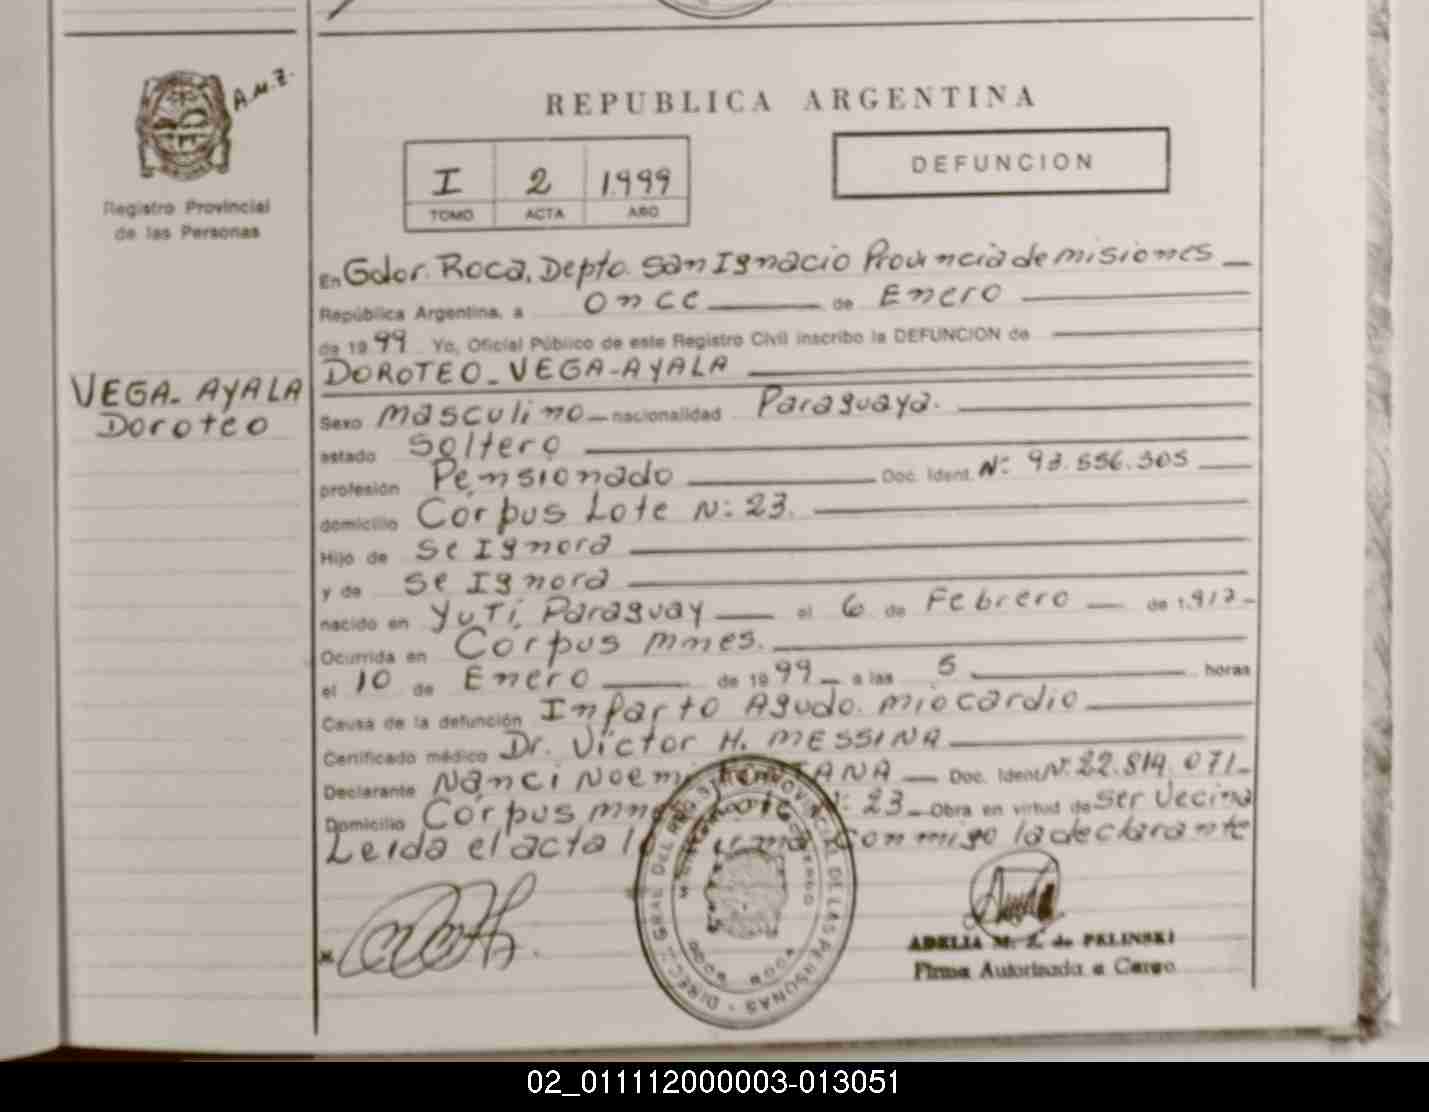 A.M.Z.
REPUBLICA ARGENTINA
I 2 1999
TOMO ACTA AÑO
DEFUNCION
Registro Provincial
de las Personas
VEGA-AYALA
Doroteo
En Gdor. Roca, Depto. San Ignacio Provincia de misiones
República Argentina, a once de Enero
de 1999 Yo, Oficial Público de este Registro Civil inscribo la DEFUNCION de
DOROTEO-VEGA-AYALA
Sexo masculino nacionalidad Paraguaya.
estado Soltero
profesión Pensionado Doc. Ident. Nº: 93.556.305
domicilio Corpus Lote Nº: 23.
Hijo de se Ignora
y de se Ignora
nacido en Yuti, Paraguay el 6 de Febrero de
Ocurrida en Corpus mnes.
el 10 de Enero de 1999 a las 5 horas
Causa de la defunción Infarto Agudo miocardio
Certificado médico Dr. Víctor H. MESSINA
Declarante Nanci Noemi Doc. Ident Nº 22.814.071
Domicilio Corpus 23 Obra en virtud de ser Vecina
Leida el acta conmigo la declarante
DIREC. GRAL DEL REGISTRO PROVINCIAL DE LAS PERSONAS
GDOR ROCA
ADELIA M. Z. de PELINSKI
Firma Autorizada a Cargo
02_011112000003-013051